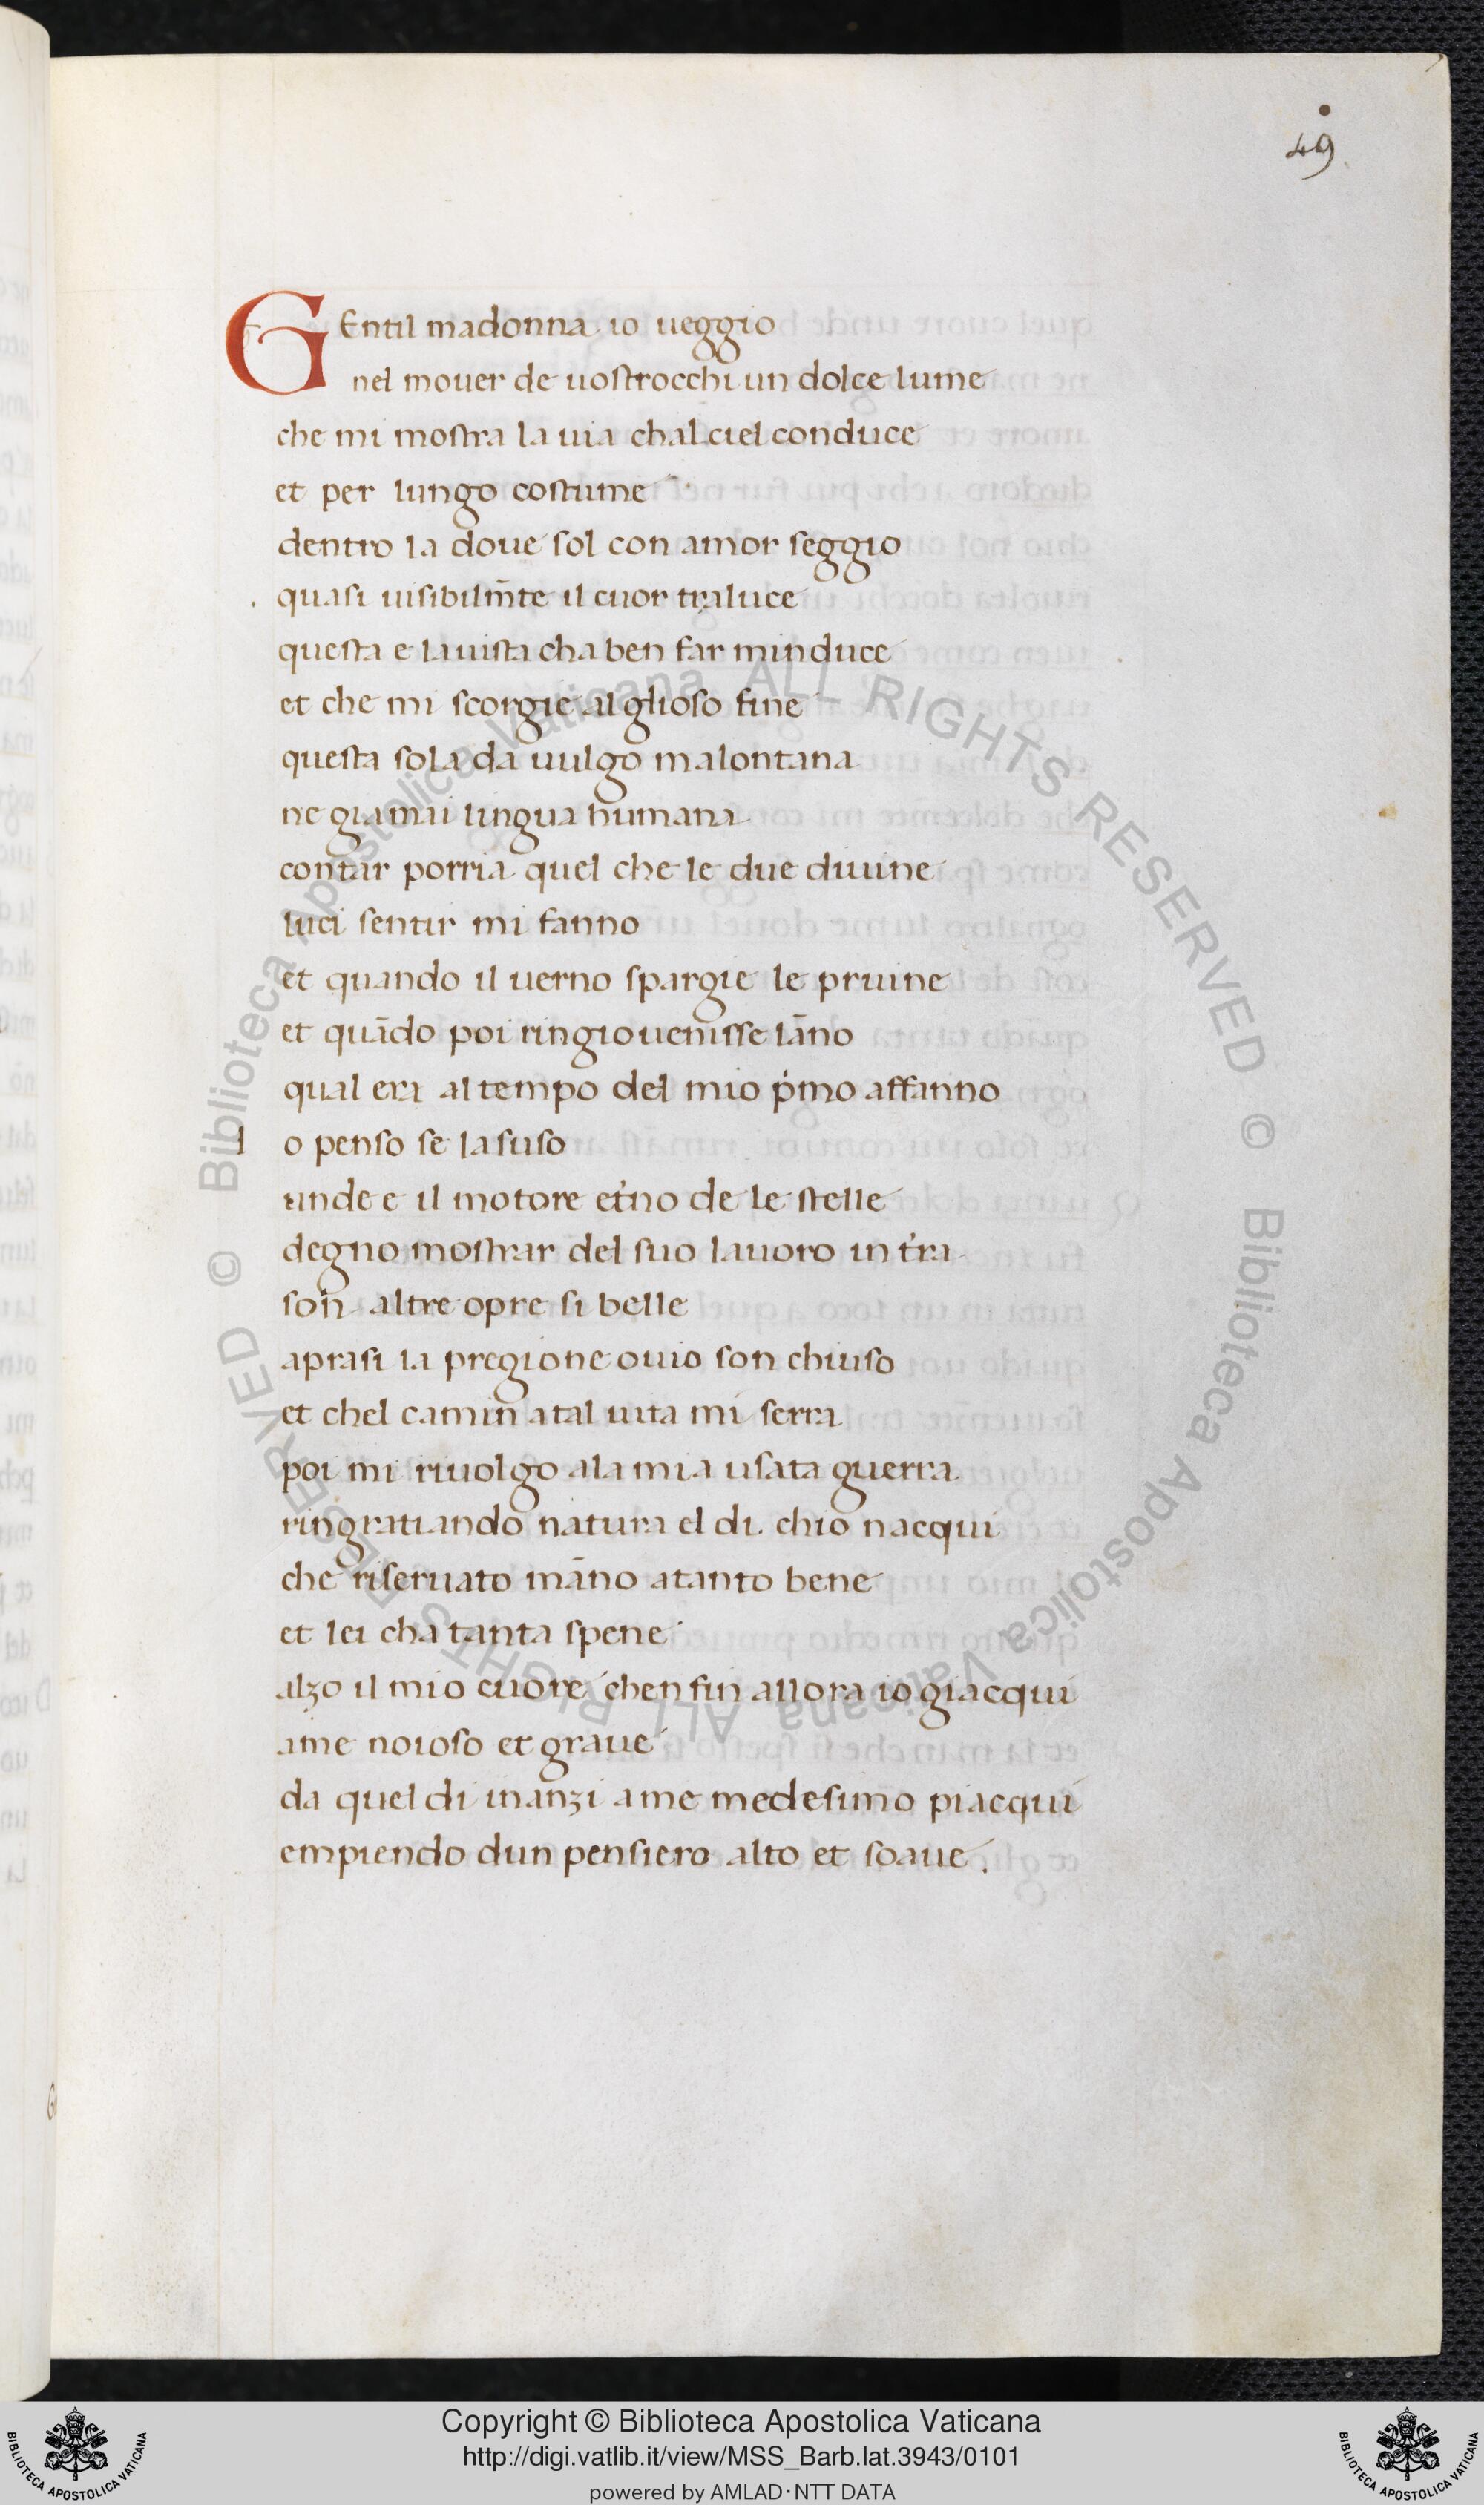 49
GEntil madonna io ueggio
nel mouer de uostrocchi un dolce lume
che mi mostra la uia chal ciel conduce
et per lungo costume
dentro la doue sol con amor seggio
quasi uisibilm̄te il cuor traluce
questa e la uista cha ben far minduce
et che mi scorgie al glioso fine
questa sola da uulgo malontana
ne giamai lingua humana
contar porria quel che le due diuine
luci sentir mi fanno
et quando il uerno spargie le pruine
et quādo poi ringiouenisse lāno
qual era al tempo del mio ṗmo affanno
I o penso se la suso
unde e il motore et̓no de le stelle
degno mostrar del suo lauoro in t̓ra
son altre opre si belle
aprasi la pregione ouio son chiuso
et chel camin atal uita mi serra
poi mi riuolgo ala mia usata guerra
ringratiando natura el di. chio nacqui
che riseruato māno atanto bene
et lei cha tanta spene
alzo il mio cuore chen fin allora io giacqui
ame noioso et graue
da quel di inanzi ame medesimo piacqui
empiendo dun pensiero alto et soaue.
Biblioteca Apostolica Vaticana ALL RIGHTS RESERVED ©
Biblioteca Apostolica Vaticana ALL RIGHTS RESERVED ©
Copyright © Biblioteca Apostolica Vaticana
http://digi.vatlib.it/view/MSS_Barb.lat.3943/0101
powered by AMLAD·NTT DATA
BIBLIOTECA APOSTOLICA VATICANA
BIBLIOTECA APOSTOLICA VATICANA